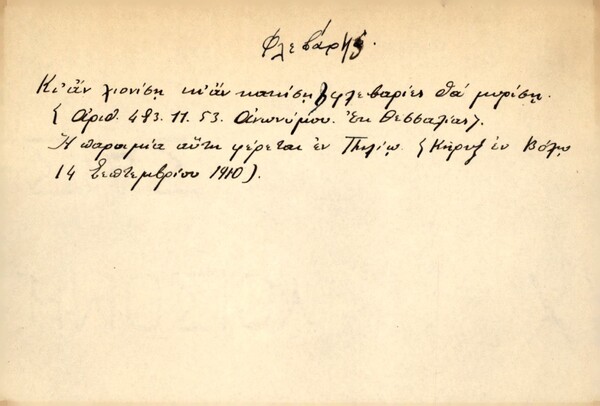 Φλεβάρης.
Κι' ἂν χιονίσῃ κι' ἂν κακίσῃ φλεβαριές θά μυρίσῃ.
(Αριθ. 483. 11. 53. Ανωνύμου. Ἐκ Θεσσαλίας).
Ἡ παροιμία αὕτη φέρεται ἐν Πηλίῳ (Κήρυξ ἐν Βόλῳ
14 Σεπτεμβρίου 1910).